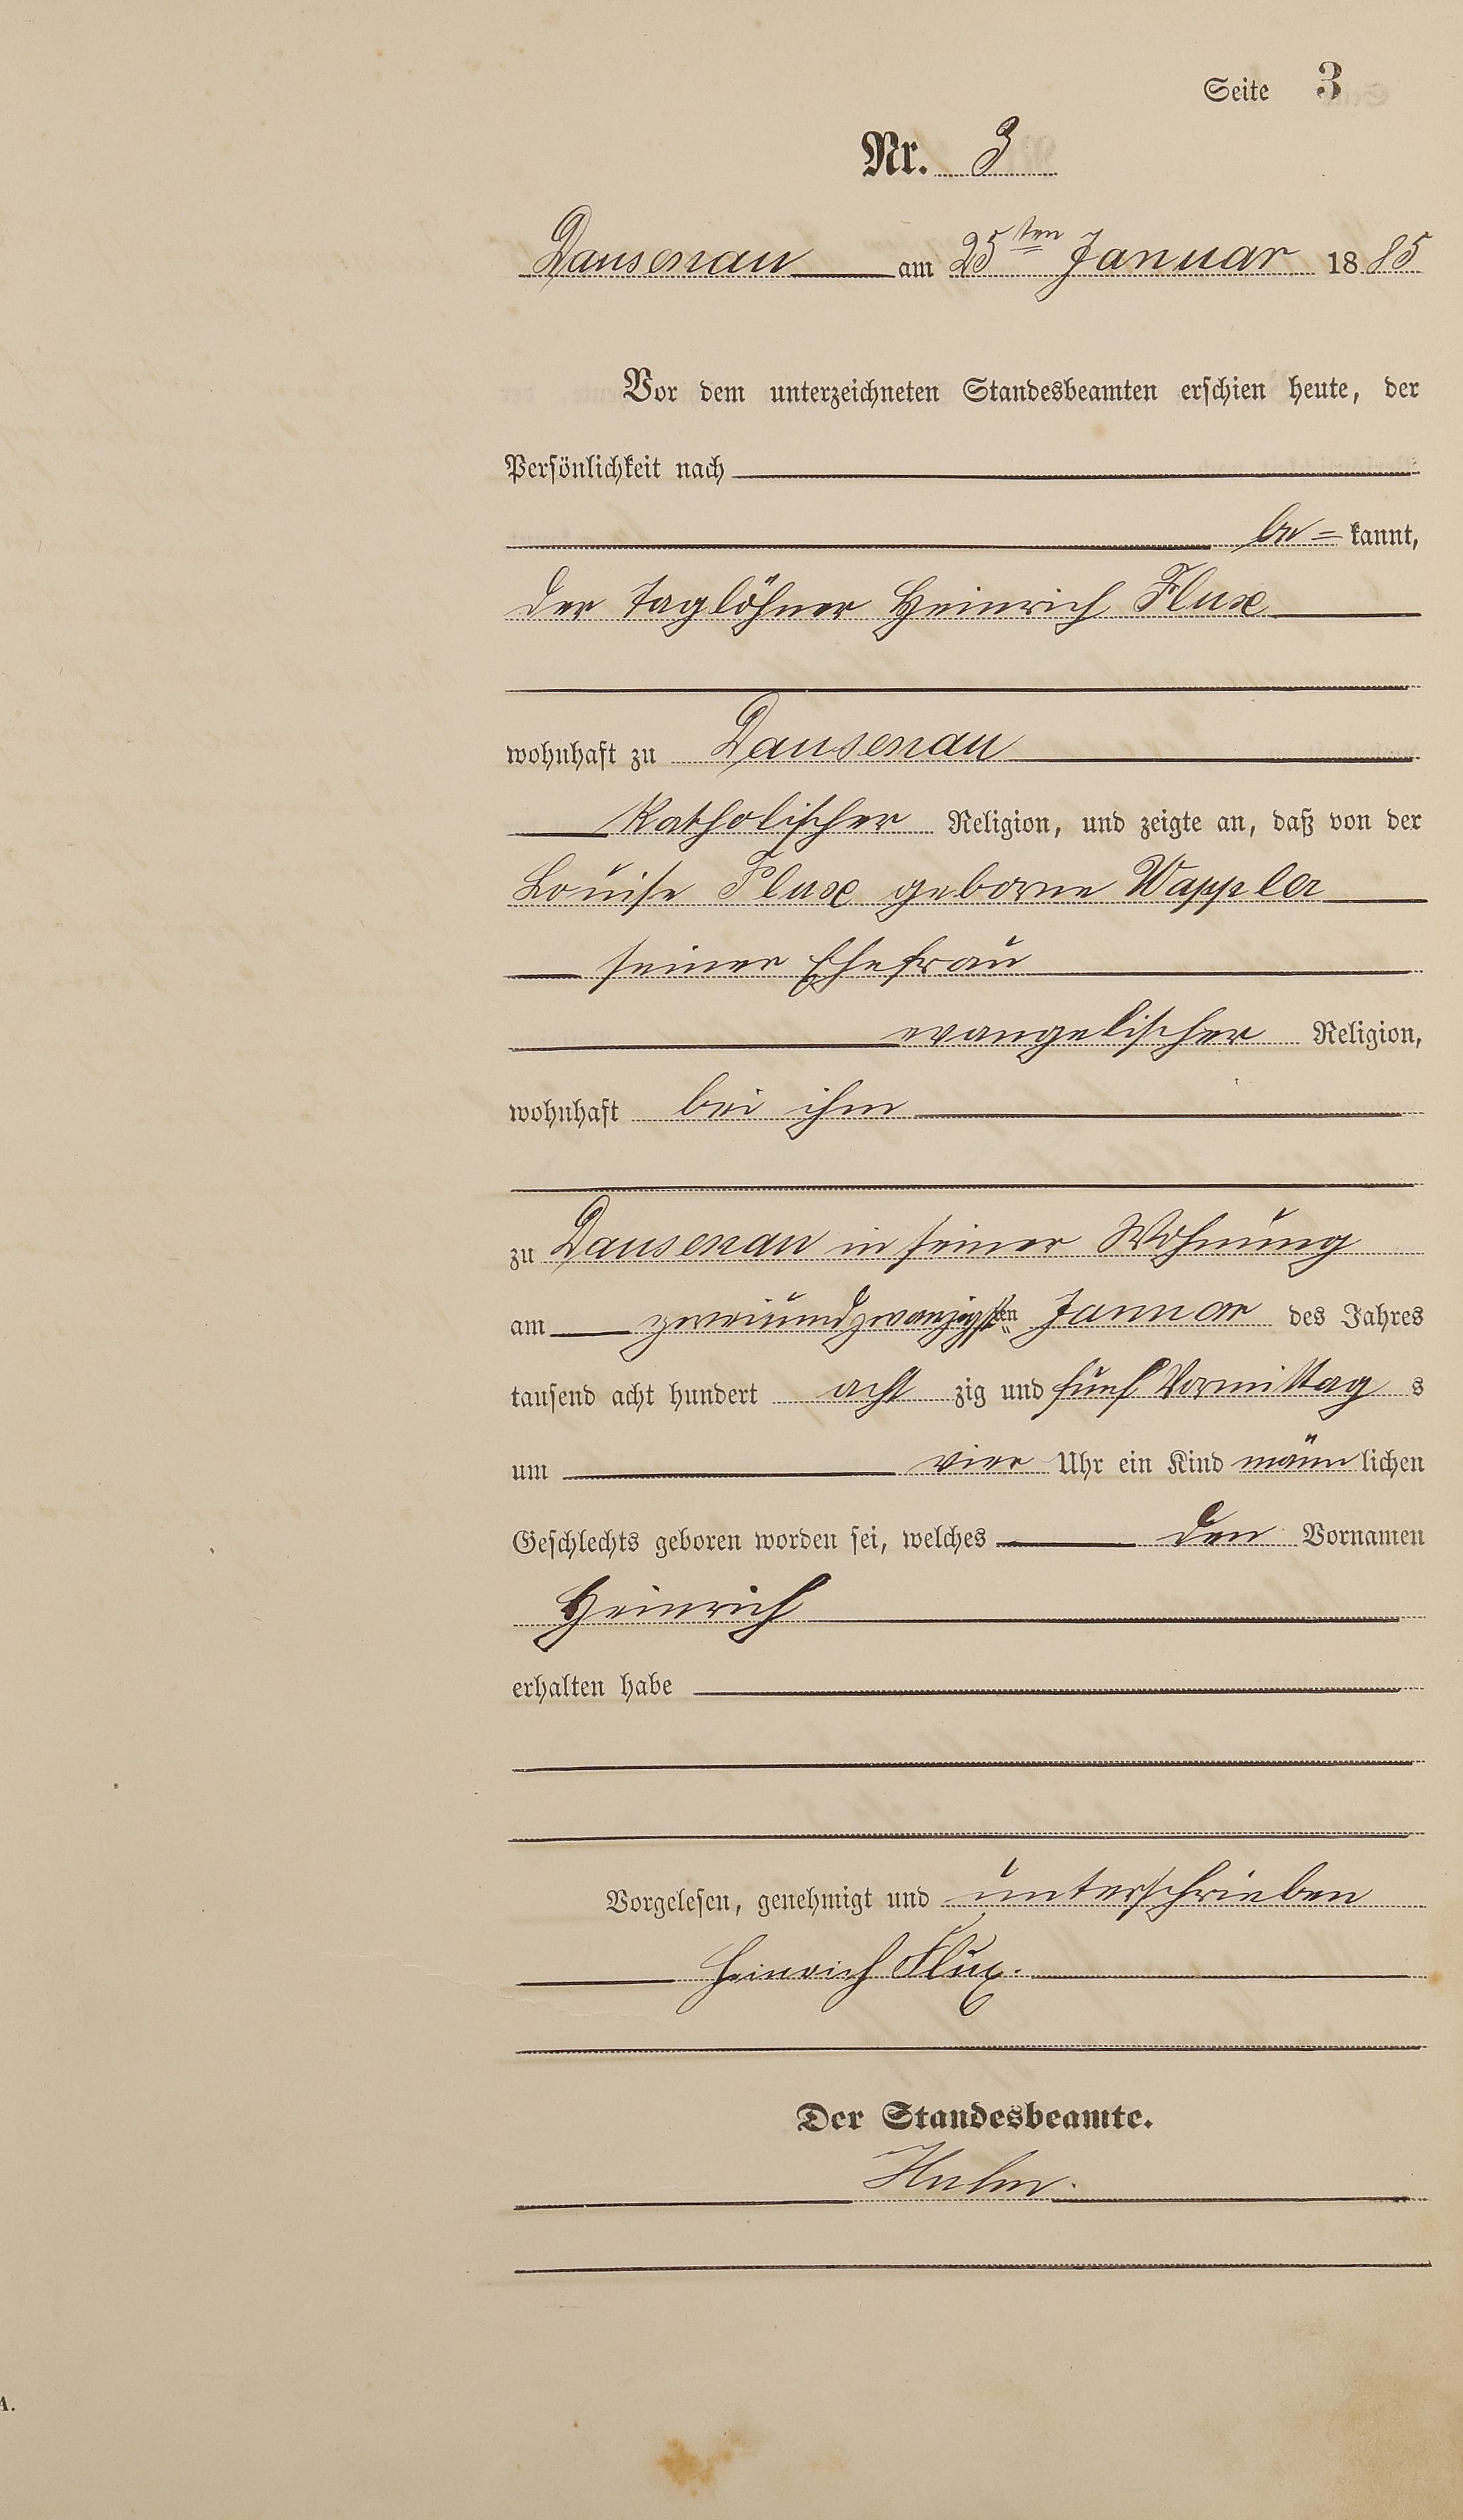 Seite 3
Nr. 3
Dausenau am 25ten Januar 1885
Vor dem unterzeichneten Standesbeamten erschien heute, der
Persönlichkeit nach
be= kannt,
der Taglöhner Heinrich Flux
wohnhaft zu Dausenau
katholischer Religion, und zeigte an, daß von der
Louise Flux geborne Wappler
seiner Ehefrau
evangelischer Religion,
wohnhaft bei ihm
zu Dausenau in seiner Wohnung
am zweiundzwanzigsten Januar des Jahres
tausend acht hundert acht zig und fünf Vormittag s
um vier Uhr ein Kind männ lichen
Geschlechts geboren worden sei, welches den Vornamen
Heinrich
erhalten habe
Vorgelesen, genehmigt und unterschrieben
Heinrich Flux.
Der Standesbeamte.
A.